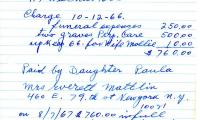 Charge 10-12-66.
funeral expenses 250.00
two graves Per. Care 500.00
upkeep 66. for Wife Mollie 10.00
$760.00
Paid by Daughter Paula
Mrs Everett Mattlin
460 E. 79. th st Newyork N.Y.
10021
on 8/7/67 $760.00 in full